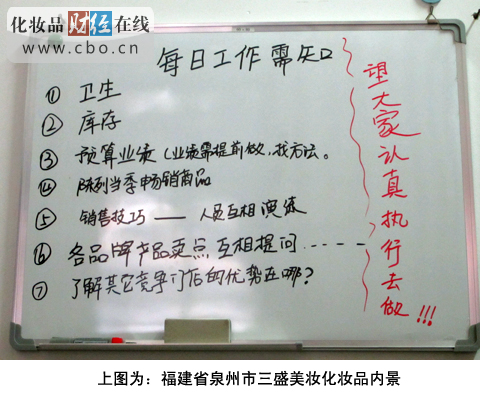 化妆品财经在线
www.cbo.cn
每日工作需知
① 卫生
② 库存
③ 预算业绩（业绩需提前做，找方法。
④ 陈列当季畅销商品
⑤ 销售技巧 —— 人员互相演练
⑥ 各品牌产品卖点互相提问-----
⑦ 了解其它竞争门店的优势在哪？
望大家认真执行去做!!!
上图为：福建省泉州市三盛美妆化妆品内景